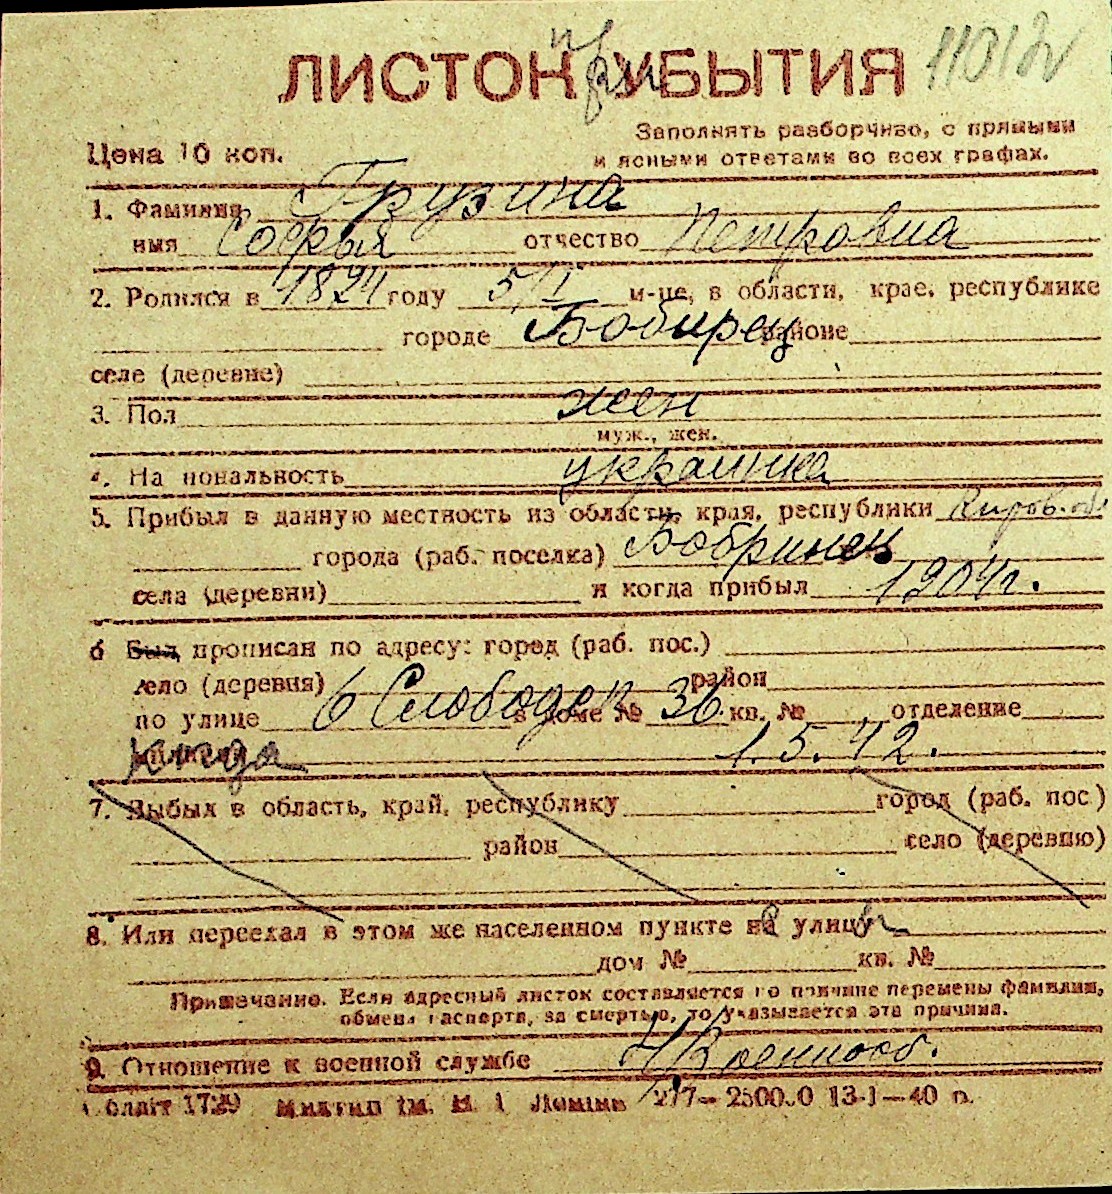 ЛИСТОК УБЫТИЯ
при
Цена 10 коп.
Заполнять разборчиво, с прямыми
и ясными ответами во всех графах.
1. Фамилия Грузина
имя Софья отчество Петровна
2. Родился в 1894 году 5/I м-це, в области, крае, республике
городе Бобирец районе
селе (деревне)
3. Пол жен
муж., жен.
4. На иональность украинка
5. Прибыл в данную местность из области, края, республики Киров. об.
города (раб. поселка) Бобринец
села (деревни) и когда прибыл 1904 г.
6 Был прописан по адресу: город (раб. пос.)
село (деревня) район
по улице 6 Слободск в доме № 36 кв. № отделение
когда 1.5.42.
7. Выбыл в область, край, республику город (раб. пос)
район село (деревню)
8. Или переехал в этом же населенном пункте на улицу
дом № кв. №
Примечание. Если адресный листок составляется по причине перемены фамилии,
обмена паспорта, за смертью, то указывается эта причина.
9. Отношение к военной службе н/военнооб.
облліт 1729 ім. 277— 13-I—40 р.